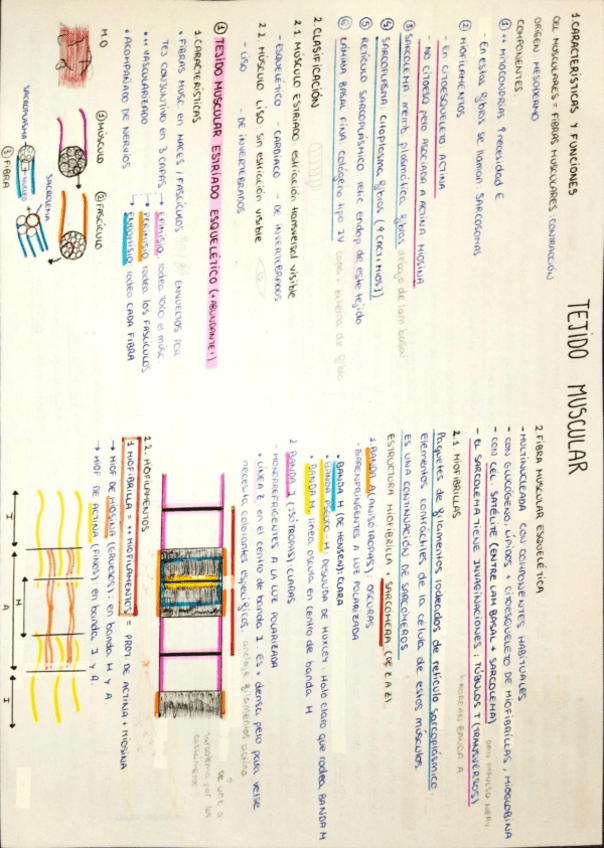 TEJIDO MUSCULAR
1. CARACTERÍSTICAS Y FUNCIONES
CEL MUSCULARES = FIBRAS MUSCULARES CONTRACCIÓN
ORIGEN MESODERMO
COMPONENTES
① ++ MITOCONDRIAS ↑ necesidad E
- En estas fibras se llaman SARCOSOMAS
② MIOFILAMENTOS
- EN CITOESQUELETO ACTINA
- NO CITOESQ PERO ASOCIADA A ACTINA MIOSINA
③ SARCOLEMA memb plasmática fibras debajo de lam basal
④ SARCOPLASMA: citoplasma fibras
⑤ RETÍCULO SARCOPLÁSMICO: retic endop de este tejido
⑥ LÁMINA BASAL FINA colágeno tipo IV externa de fibra
2. CLASIFICACIÓN
2.1. MÚSCULO ESTRIADO estriación transversal visible
- ESQUELÉTICO - CARDÍACO - DE INVERTEBRADOS
2.2. MÚSCULO LISO sin estriación visible
- LISO - DE INVERTEBRADOS
① TEJIDO MUSCULAR ESTRIADO ESQUELÉTICO (+ ABUNDANTE!)
1. CARACTERÍSTICAS
• FIBRAS MUSC EN HACES / FASCÍCULOS ENVUELTOS POR
TEJ CONJUNTIVO EN 3 CAPAS → EPIMISIO, rodea TODO el músc
•• VASCULARIZADO → PERIMISIO rodea los FASCÍCULOS
• ACOMPAÑADO DE NERVIOS → ENDOMISIO rodea CADA FIBRA
M.O
① MÚSCULO
② FASCÍCULO
SARCOLEMA
SARCOPLASMA
NÚCLEO
③ FIBRA
2. FIBRA MUSCULAR ESQUELÉTICA
- MULTINUCLEADA CON COMPONENTES HABITUALES
- CON GLUCÓGENO, LÍPIDOS + CITOESQUELETO DE MIOFIBRILLAS + MIOGLOBINA
- CON CEL. SATÉLITE (ENTRE LAM BASAL + SARCOLEMA)
- EL SARCOLEMA TIENE INVAGINACIONES: TÚBULOS T (TRANSVERSOS)
2.1 MIOFIBRILLAS
Paquetes de filamentos rodeados de retículo sarcoplásmico
Elementos contráctiles de la célula de estos músculos.
ES UNA CONTINUACIÓN DE SARCÓMEROS
ESTRUCTURA MIOFIBRILLA: SARCÓMERA (DE Z A Z).
1. BANDA A (ANISÓTROPAS): OSCURAS
- BIREFRINGENTES A LUZ POLARIZADA
• BANDA H (DE HENSEN): CLARA
• BANDA PSEUDO-H DESNUDA DE HUXLEY. Halo claro que rodea BANDA M
• BANDA M. línea oscura en centro de banda H
2. BANDA I (ISÓTROPAS): CLARAS
- MONORREFRIGENTES A LA LUZ POLARIZADA
• LÍNEA Z en el centro de banda I. Es + densa pero para verse
necesita colorantes específicos. anclaje filamentos actina
2.2. MIOFILAMENTOS
1 MIOFIBRILLA = ++ MIOFILAMENTOS = PROT DE ACTINA + MIOSINA
→ MIOF DE MIOSINA (GRUESOS). en banda H y A
→ MIOF DE ACTINA (FINOS). en banda I y A.
I H I
A